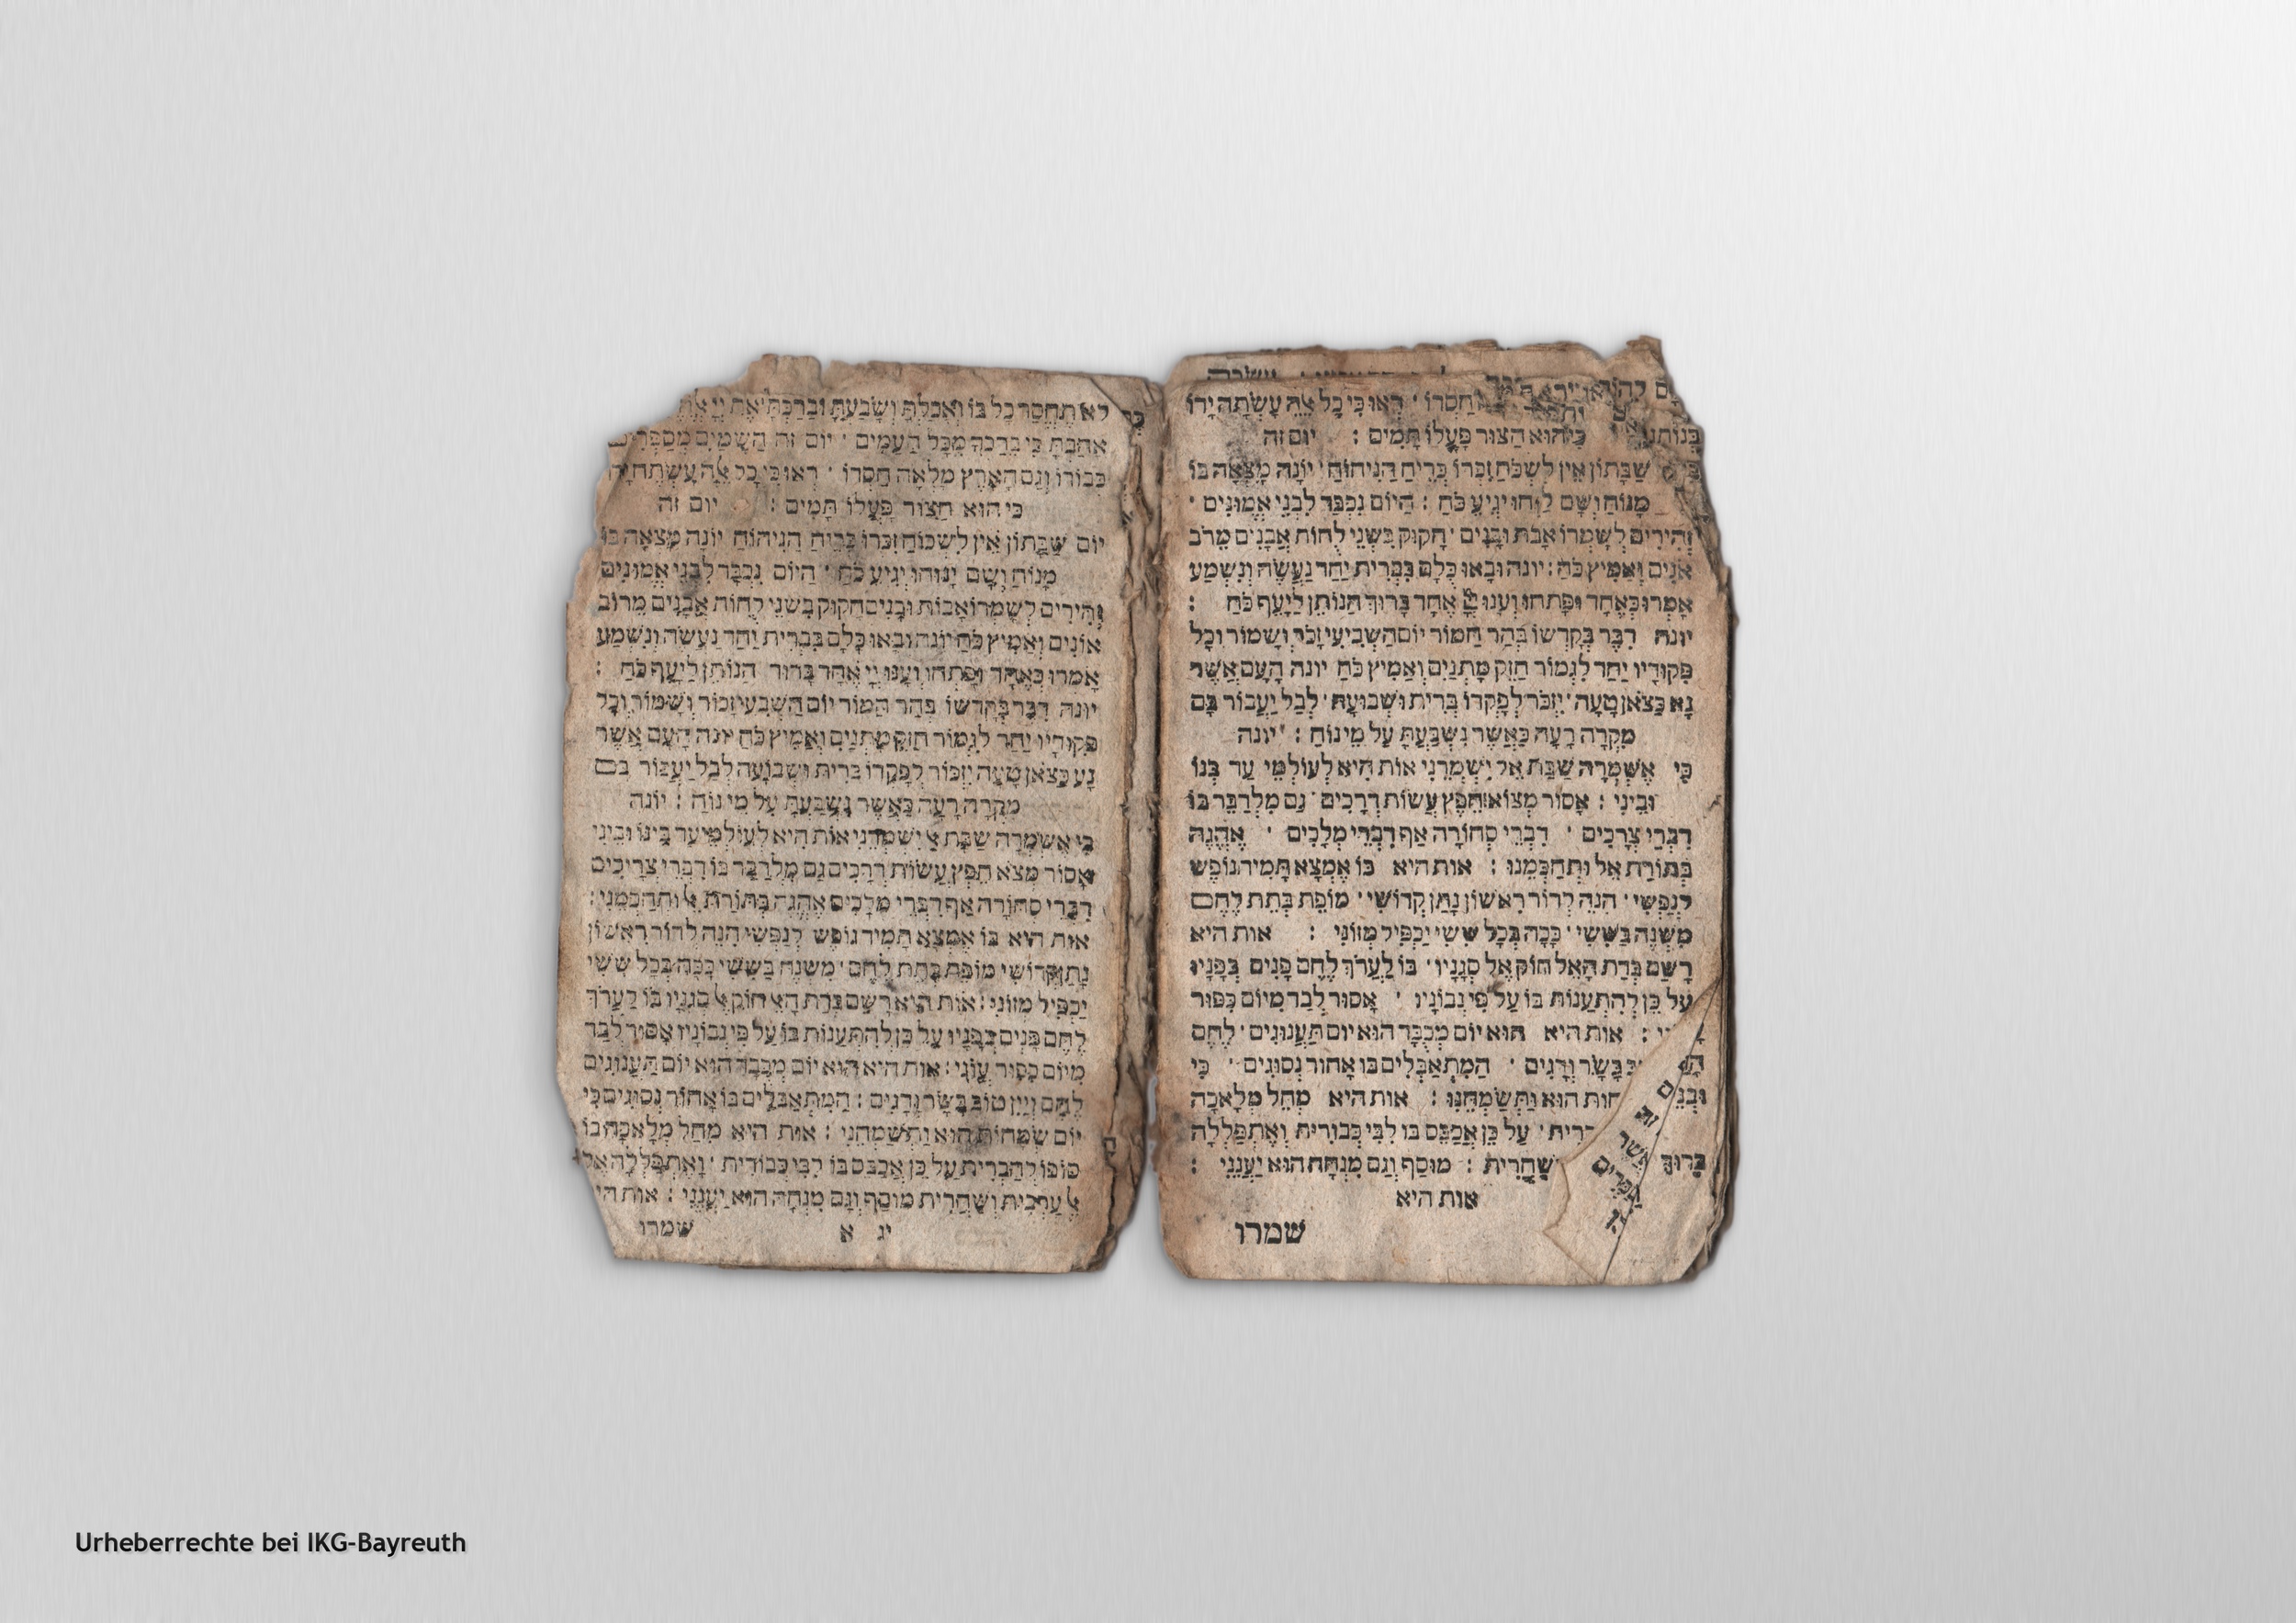 חַסְדוֹ · רְאוּ כִּי כָל אֵלֶּה עָשְׂתָה יָדוֹ
כִּי הוּא הַצּוּר פָּעֳלוֹ תָּמִים : יום זה
שַׁבָּתוֹן אֵין לִשְׁכֹּחַ זִכְרוֹ כְּרֵיחַ הַנִּיחוֹחַ · יוֹנָה מָצְאָה בוֹ
מָנוֹחַ וְשָׁם יָנוּחוּ יְגִיעֵי כֹחַ : הַיּוֹם נִכְבָּד לִבְנֵי אֱמוּנִים ·
זְהִירִים לְשָׁמְרוֹ אָבֹת וּבָנִים · חָקוּק בִּשְׁנֵי לֻחוֹת אֲבָנִים מֵרֹב
אֹנִים וְאַמִּיץ כֹּחַ : יונה וּבָאוּ כֻלָּם בִּבְרִית יַחַד נַעֲשֶׂה וְנִשְׁמַע
אָמְרוּ כְּאֶחָד וּפָתְחוּ וְעָנוּ יְיָ אֶחָד בָּרוּךְ הַנּוֹתֵן לַיָּעֵף כֹּחַ :
יונה דִּבֶּר בְּקָדְשׁוֹ בְּהַר הַמּוֹר יוֹם הַשְּׁבִיעִי זָכֹר וְשָׁמוֹר וְכָל
פִּקּוּדָיו יַחַד לִגְמוֹר חַזֵּק מָתְנַיִם וְאַמֵּיץ כֹּחַ יונה הָעָם אֲשֶׁר
נָא כַּצֹּאן טָעָה · יִזְכֹּר לְפָקְדוֹ בְּרִית וּשְׁבוּעָה · לְבַל יַעֲבוֹר בָּם
מִקְרֵה רָעָה כַּאֲשֶׁר נִשְׁבַּעְתָּ עַל מֵי נוֹחַ : יונה
כִּי אֶשְׁמְרָה שַׁבָּת אֵל יִשְׁמְרֵנִי אוֹת הִיא לְעוֹלְמֵי עַד בֵּנוֹ
וּבֵינִי : אָסוּר מְצוֹא חֵפֶץ עֲשׂוֹת דְּרָכִים · גַּם מִלְּדַבֵּר בּוֹ
דִּבְרֵי צְרָכִים · דִּבְרֵי סְחוֹרָה אַף דִּבְרֵי מְלָכִים · אֶהְגֶּה
בְּתוֹרַת אֵל וּתְחַכְּמֵנוּ : אות היא בּוֹ אֶמְצָא תָּמִיד נוֹפֶשׁ
לְנַפְשִׁי · הִנֵּה לְדוֹר רִאשׁוֹן נָתַן קְדוֹשִׁי · מוֹפֵת בְּתֵת לֶחֶם
מִשְׁנֶה בַּשִּׁשִּׁי · כָּכָה בְּכָל שִׁשִּׁי יַכְפִּיל מְזוֹנִי : אות היא
רָשַׁם בְּדַת הָאֵל חוֹק אֶל סְגָנָיו · בּוֹ לַעֲרֹךְ לֶחֶם פָּנִים בְּפָנָיו
עַל כֵּן לְהִתְעַנּוֹת בּוֹ עַל פִּי נְבוֹנָיו · אָסוּר לְבַד מִיּוֹם כִּפּוּר
: אות היא הוּא יוֹם מְכֻבָּד הוּא יוֹם תַּעֲנוּגִים · לֶחֶם
בָּשָׂר וְדָגִים · הַמִּתְאַבְּלִים בּוֹ אָחוֹר נְסוּגִים · כִּי
הוּא וּתְשַׂמְּחֵנוּ : אות היא מֵחֵל מְלָאכָה
עַל כֵּן אֲכַבֵּס בּוֹ לִבִּי כְּבוֹרִית וְאֶתְפַּלְלָה
שַׁחֲרִית : מוּסָף וְגַם מִנְחָה הוּא יַעֲנֵנִי :
אות היא
שמרו
לא תֶחְסַר כָּל בּוֹ וְאָכַלְתָּ וְשָׂבָעְתָּ וּבֵרַכְתָּ אֶת יְיָ
אָהַבְתָּ כִּי בֵרַכְךָ מִכָּל הָעַמִּים · יום זה הַשָּׁמַיִם מְסַפְּרִים
כְּבוֹדוֹ וְגַם הָאָרֶץ מָלְאָה חַסְדוֹ · רְאוּ כִּי כָל אֵלֶּה עָשְׂתָה
כִּי הוּא הַצּוּר פָּעֳלוֹ תָּמִים : יום זה
יוֹם שַׁבָּתוֹן אֵין לִשְׁכּוֹחַ זִכְרוֹ כְּרֵיחַ הַנִּיחוֹחַ יוֹנָה מָצְאָה בוֹ
מָנוֹחַ וְשָׁם יָנוּחוּ יְגִיעֵי כֹחַ · הַיּוֹם נִכְבָּד לִבְנֵי אֱמוּנִים
זְהִירִים לְשָׁמְרוֹ אָבוֹת וּבָנִים חָקוּק בִּשְׁנֵי לֻחוֹת אֲבָנִים מֵרוֹב
אוֹנִים וְאַמִּיץ כֹּחַ יונה וּבָאוּ כֻלָּם בִּבְרִית יַחַד נַעֲשֶׂה וְנִשְׁמַע
אָמְרוּ כְּאֶחָד וּפָתְחוּ וְעָנוּ יְיָ אֶחָד בָּרוּךְ הַנּוֹתֵן לַיָּעֵף כֹּחַ :
יונה דִּבֶּר בְּקָדְשׁוֹ בְּהַר הַמּוֹר יוֹם הַשְּׁבִעִי זָכוֹר וְשָׁמוֹר וְכָל
פִּקּוּדָיו יַחַד לִגְמוֹר חַזֵּק מָתְנַיִם וְאַמֵּץ כֹּחַ יונה הָעָם אֲשֶׁר
נָע כַּצֹּאן טָעָה יִזְכּוֹר לְפָקְדוֹ בְּרִית וּשְׁבוּעָה לְבַל יַעֲבוֹר בם
מִקְרֵה רָעָה כַּאֲשֶׁר נִשְׁבַּעְתָּ עַל מֵי נוֹחַ : יונה
כִּי אֶשְׁמְרָה שַׁבָּת אֵל יִשְׁמְרֵנִי אוֹת הִיא לְעוֹלְמֵי עַד בֵּינוֹ וּבֵינִי
אָסוּר מְצֹא חֵפֶץ עֲשׂוֹת דְּרָכִים גַּם מִלְּדַבֵּר בּוֹ דִּבְרֵי צְרִיכִים
דִּבְרֵי סְחוֹרָה אַף דִּבְרֵי מְלָכִים אֶהְגֶּה בְּתוֹרַת אֵל וּתְחַכְּמֵנִי :
אות היא בּוֹ אֶמְצָא תָּמִיד נוֹפֶשׁ לְנַפְשִׁי הִנֵּה לְדוֹר רִאשׁוֹן
נָתַן קְדוֹשִׁי מוֹפֵת בְּתֵת לֶחֶם · מִשְׁנֶה בַּשִּׁשִּׁי כָּכָה בְּכָל שִׁשִּׁי
יַכְפִּיל מְזוֹנִי : אות היא רָשַׁם בְּדַת הָאֵל חוֹק אֶל סְגָנָיו בּוֹ לַעֲרֹךְ
לֶחֶם פָּנִים בְּפָנָיו עַל כֵּן לְהִתְעַנּוֹת בּוֹ עַל פִּי נְבוֹנָיו אָסוּר לְבַד
מִיּוֹם כִּפּוּר עֲוֹנִי : אות היא הוּא יוֹם מְכֻבָּד הוּא יוֹם תַּעֲנוּגִים
לֶחֶם וְיַיִן טוֹב בָּשָׂר וְדָגִים : הַמִּתְאַבְּלִים בּוֹ אָחוֹר נְסוּגִים כִּי
יוֹם שְׂמָחוֹת הוּא וּתְשַׂמְּחֵנִי : אות היא מֵחֵל מְלָאכָה בּוֹ
סוֹפוֹ לְהַכְרִית עַל כֵּן אֲכַבֵּס בּוֹ לִבִּי כְּבוֹרִית · וְאֶתְפַּלְלָה אֶל
אֵל עַרְבִית וְשַׁחֲרִית מוּסָף וְגַם מִנְחָה הוּא יַעֲנֵנִי : אות הי
יג א שמרו
Urheberrechte bei IKG-Bayreuth